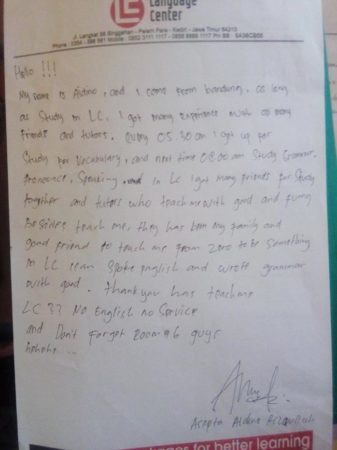 Language
LC Center
Jl. Langkat 88 Singgahan - Pelem Pare - Kediri - Jawa Timur 64213
Hello !!!
My name is Aldino, and I come from bandung, as long
as Study in LC, I got many experience with so many
friends and tutors. every 05.30 am I got up for
Study for Vocabulary, and next time 08.00 am Study Grammar.
Pronounce, Speaking, and In LC I got many friends for Study
together and tutors who teach me with good and funny
Besides teach me, they has been my family and
good friend to teach me from zero to be something
in LC learn spoke english and wrote grammar
with good. thank you has teach me
LC ?? No English no Service
and Don't Forget Room 96 guys
hehehe ...
Asepta Aldino
for better learning